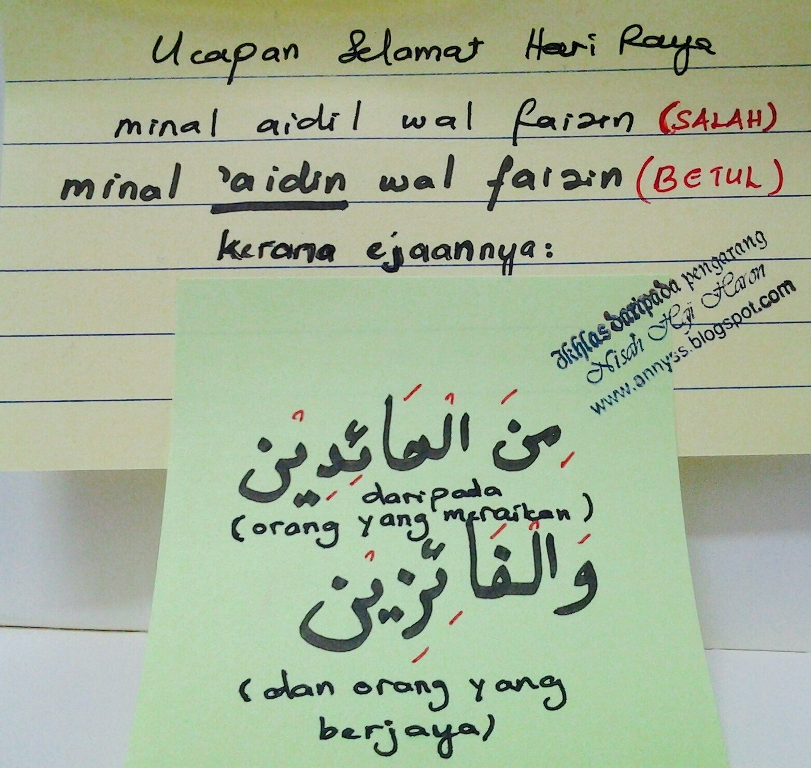 Ucapan Selamat Hari Raya
minal aidil wal faizin (SALAH)
minal 'aidin wal faizin (BETUL)
kerana ejaannya:
Ikhlas daripada pengarang
Nisah Haji Haron
www.annyss.blogspot.com
مِنَ الْعَائِدِيْن
daripada
(orang yang meraikan)
وَالْفَائِزِيْن
(dan orang yang
berjaya)